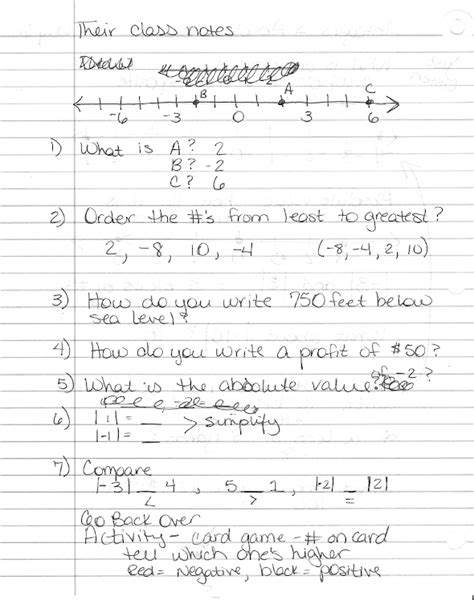 Their class notes
B A C
-6 -3 0 3 6
1) What is A? 2
B? -2
C? 6
2) Order the #'s from least to greatest?
2, -8, 10, -4 (-8, -4, 2, 10)
3) How do you write 750 feet below
sea level?
4) How do you write a profit of $50?
5) What is the absolute value of -2?
6) |1| = __
|-1| = __ > simplify
7) Compare
|-3| __ 4 , 5 __ 1 , |-2| __ |2|
< > =
Go Back Over
Activity - card game - # on card
tell which one's higher
Red = Negative, black = positive